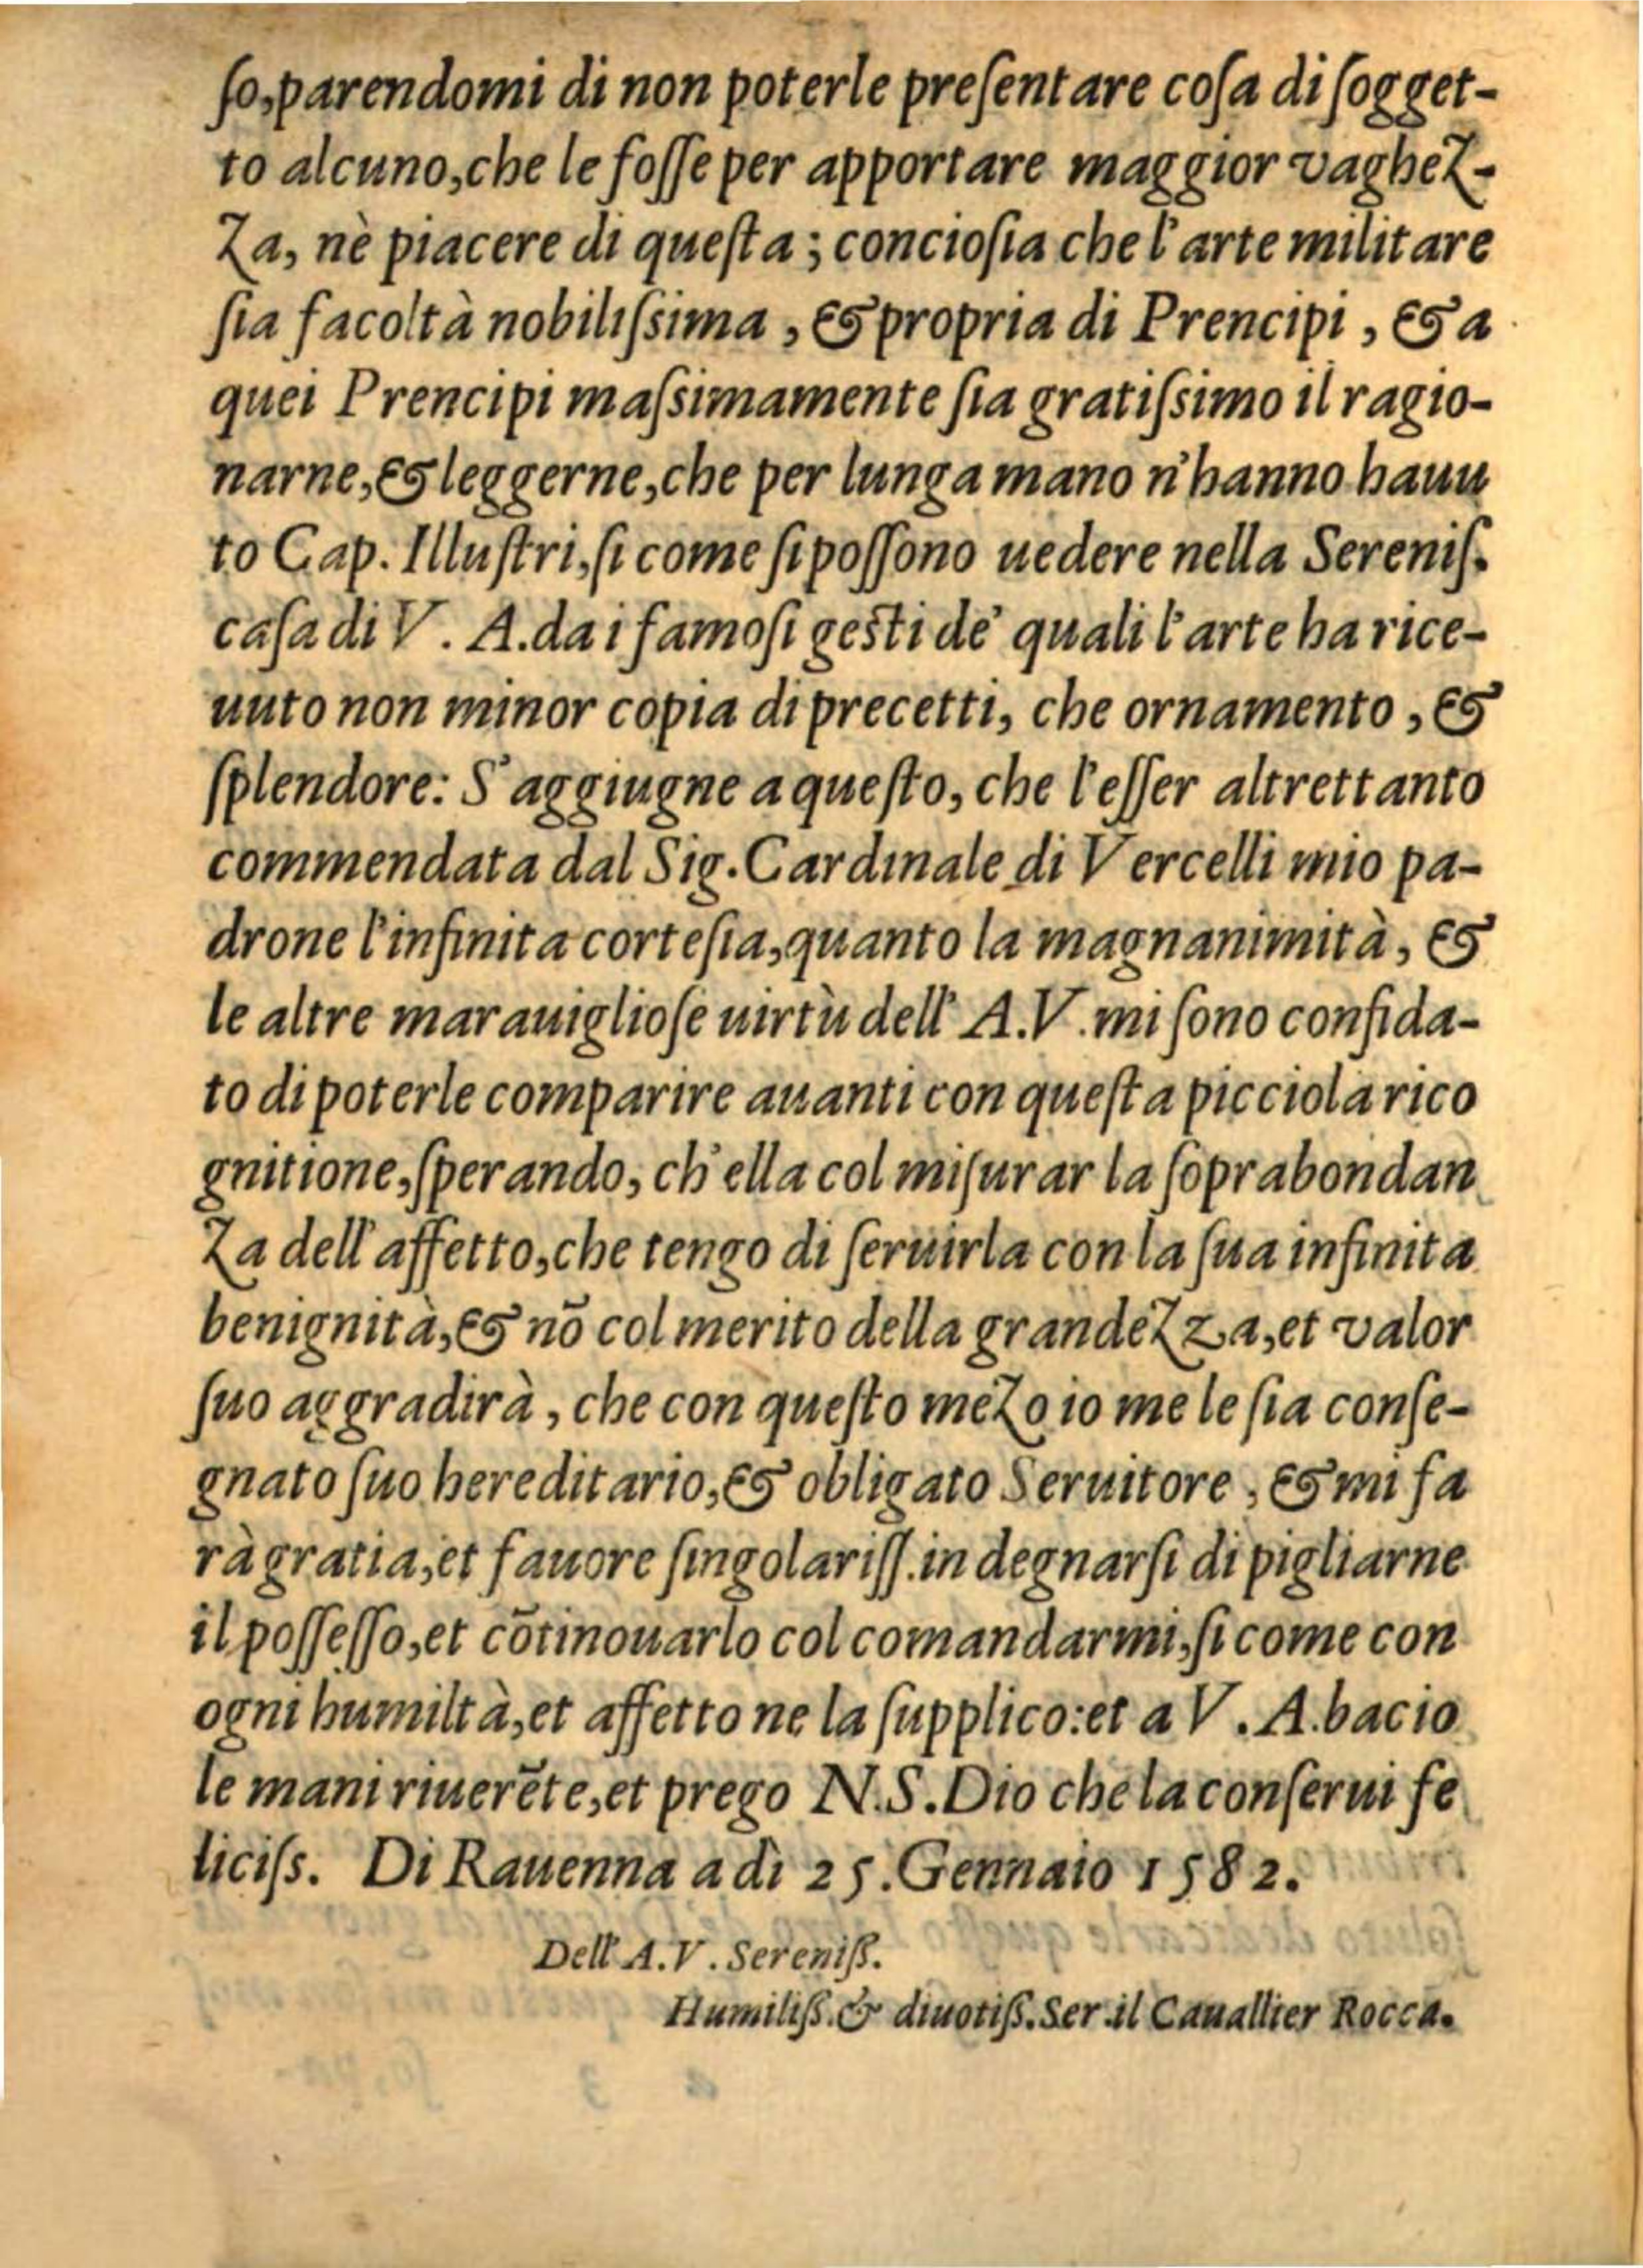 ſo, parendomi di non poterle preſentare coſa di ſogget-
to alcuno, che le foſſe per apportare maggior vaghez-
za, nè piacere di queſta; concioſia che l'arte militare
ſia facoltà nobiliſsima, & propria di Prencipi, & a
quei Prencipi maſsimamente ſia gratiſsimo il ragio-
narne, & leggerne, che per lunga mano n'hanno hauu
to Cap. Illuſtri, ſi come ſi poſſono uedere nella Sereniſ.
caſa di V. A. da i famoſi geſti de' quali l'arte ha rice-
uuto non minor copia di precetti, che ornamento, &
ſplendore: S'aggiugne a queſto, che l'eſſer altrettanto
commendata dal Sig. Cardinale di Vercelli mio pa-
drone l'infinita corteſia, quanto la magnanimità, &
le altre marauiglioſe uirtù dell' A.V. mi ſono confida-
to di poterle comparire auanti con queſta picciola rico
gnitione, ſperando, ch'ella col miſurar la ſoprabondan
za dell'affetto, che tengo di ſeruirla con la ſua infinita
benignità, & nō col merito della grandezza, et valor
ſuo aggradirà, che con queſto mezo io me le ſia conſe-
gnato ſuo hereditario, & obligato Seruitore, & mi fa
rà gratia, et fauore ſingolariſſ. in degnarſi di pigliarne
il poſſeſſo, et cōtinouarlo col comandarmi, ſi come con
ogni humiltà, et affetto ne la ſupplico: et a V. A. bacio
le mani riuerēte, et prego N.S. Dio che la conſerui fe
liciſs. Di Rauenna a dì 25. Gennaio 1582.
Dell' A.V. Sereniſſ.
Humiliſſ. & diuotiſſ. Ser. il Cauallier Rocca.